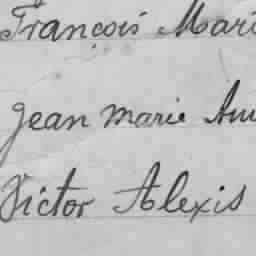 François Mari
Jean marie
Victor Alexis